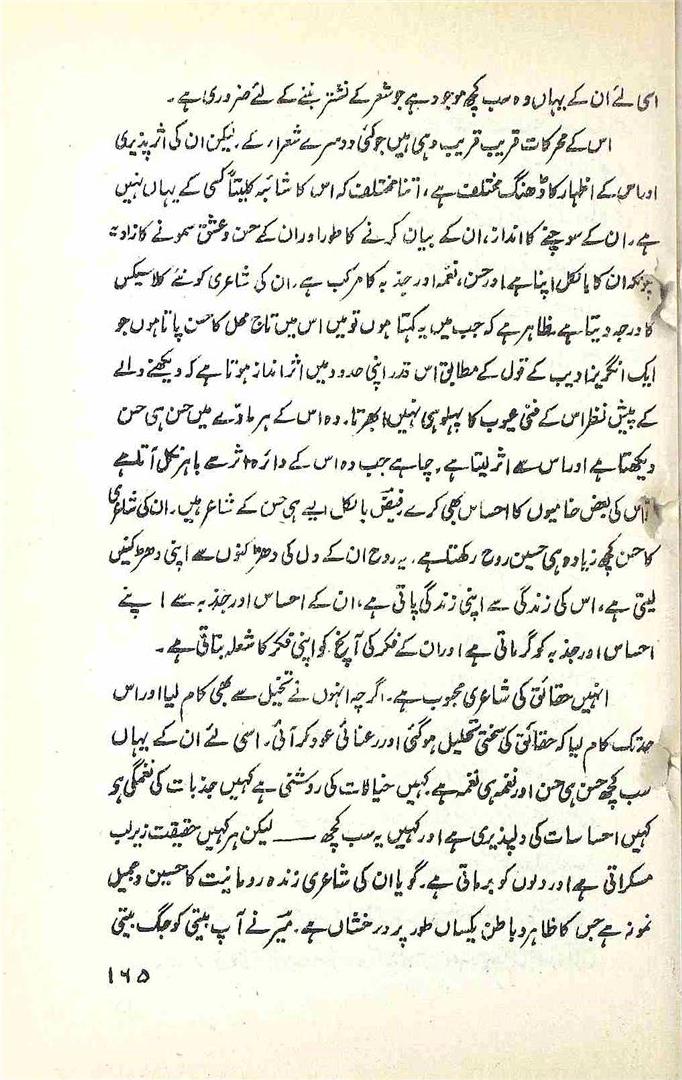 اسی لئے ان کے یہاں وہ سب کچھ موجود ہے جو شعر کے نشتر بننے کے لئے ضروری ہے۔
اس کے محرکات قریب قریب وہی ہیں جو کئی دوسرے شعراء کے۔ لیکن ان کی اثر پذیری
اور اس کے اظہار کا ڈھنگ مختلف ہے، اتنا مختلف کہ اس کا شائبہ کلیتاً کسی کے یہاں نہیں
ہے۔ ان کے سوچنے کا انداز، ان کے بیان کرنے کا طور اور ان کے حسن و عشق سمونے کا زاویہ
چونکہ ان کا بالکل اپنا ہے اور حسن، نغمہ اور جذبہ کا مرکب ہے۔ ان کی شاعری کو نئے کلاسیکس
کا درجہ دیتا ہے۔ ظاہر ہے کہ جب میں یہ کہتا ہوں تو میں اس میں تاج محل کا حسن پاتا ہوں جو
ایک انگریز ادیب کے قول کے مطابق اس قدر اپنی حدود میں اثر انداز ہوتا ہے کہ دیکھنے والے
کے پیش نظر اس کے فنی عیوب کا پہلو ہی نہیں ابھرتا۔ وہ اس کے ہر مادّے میں حسن ہی حسن
دیکھتا ہے اور اس سے اثر لیتا ہے۔ چاہے جب وہ اس کے دائرہ اثر سے باہر نکل آتا ہے
تو اس کی بعض خامیوں کا احساس بھی کرے۔ فیض بالکل ایسے ہی حسن کے شاعر ہیں۔ ان کی شاعری
کا حسن کچھ زیادہ ہی حسین روح رکھتا ہے۔ یہ روح ان کے دل کی دھڑکنوں سے اپنی دھڑکنیں
لیتی ہے، اس کی زندگی سے اپنی زندگی پاتی ہے، ان کے احساس اور جذبہ سے اپنے
احساس اور جذبہ کو گرماتی ہے اور ان کے فکر کی آنچ کو اپنی فکر کا شعلہ بناتی ہے۔
انہیں حقائق کی شاعری محبوب ہے۔ اگرچہ انہوں نے تخیل سے بھی کام لیا اور اس
حد تک کام لیا کہ حقائق کی سختی تحلیل ہو گئی اور رعنائی عود کر آئی۔ اسی لئے ان کے یہاں
سب کچھ حسن ہی حسن اور نغمہ ہی نغمہ ہے۔ کہیں خیالات کی روشنی ہے کہیں جذبات کی نغمگی ہو
کہیں احساسات کی دلپذیری ہے اور کہیں یہ سب کچھ ——— لیکن ہر کہیں حقیقت زیر لب
مسکراتی ہے اور دلوں کو برماتی ہے۔ گویا ان کی شاعری زندہ رومانیت کا حسین و جمیل
نمونہ ہے جس کا ظاہر و باطن یکساں طور پر درخشاں ہے۔ میرؔ نے آپ بیتی کو جگ بیتی
۱۶۵